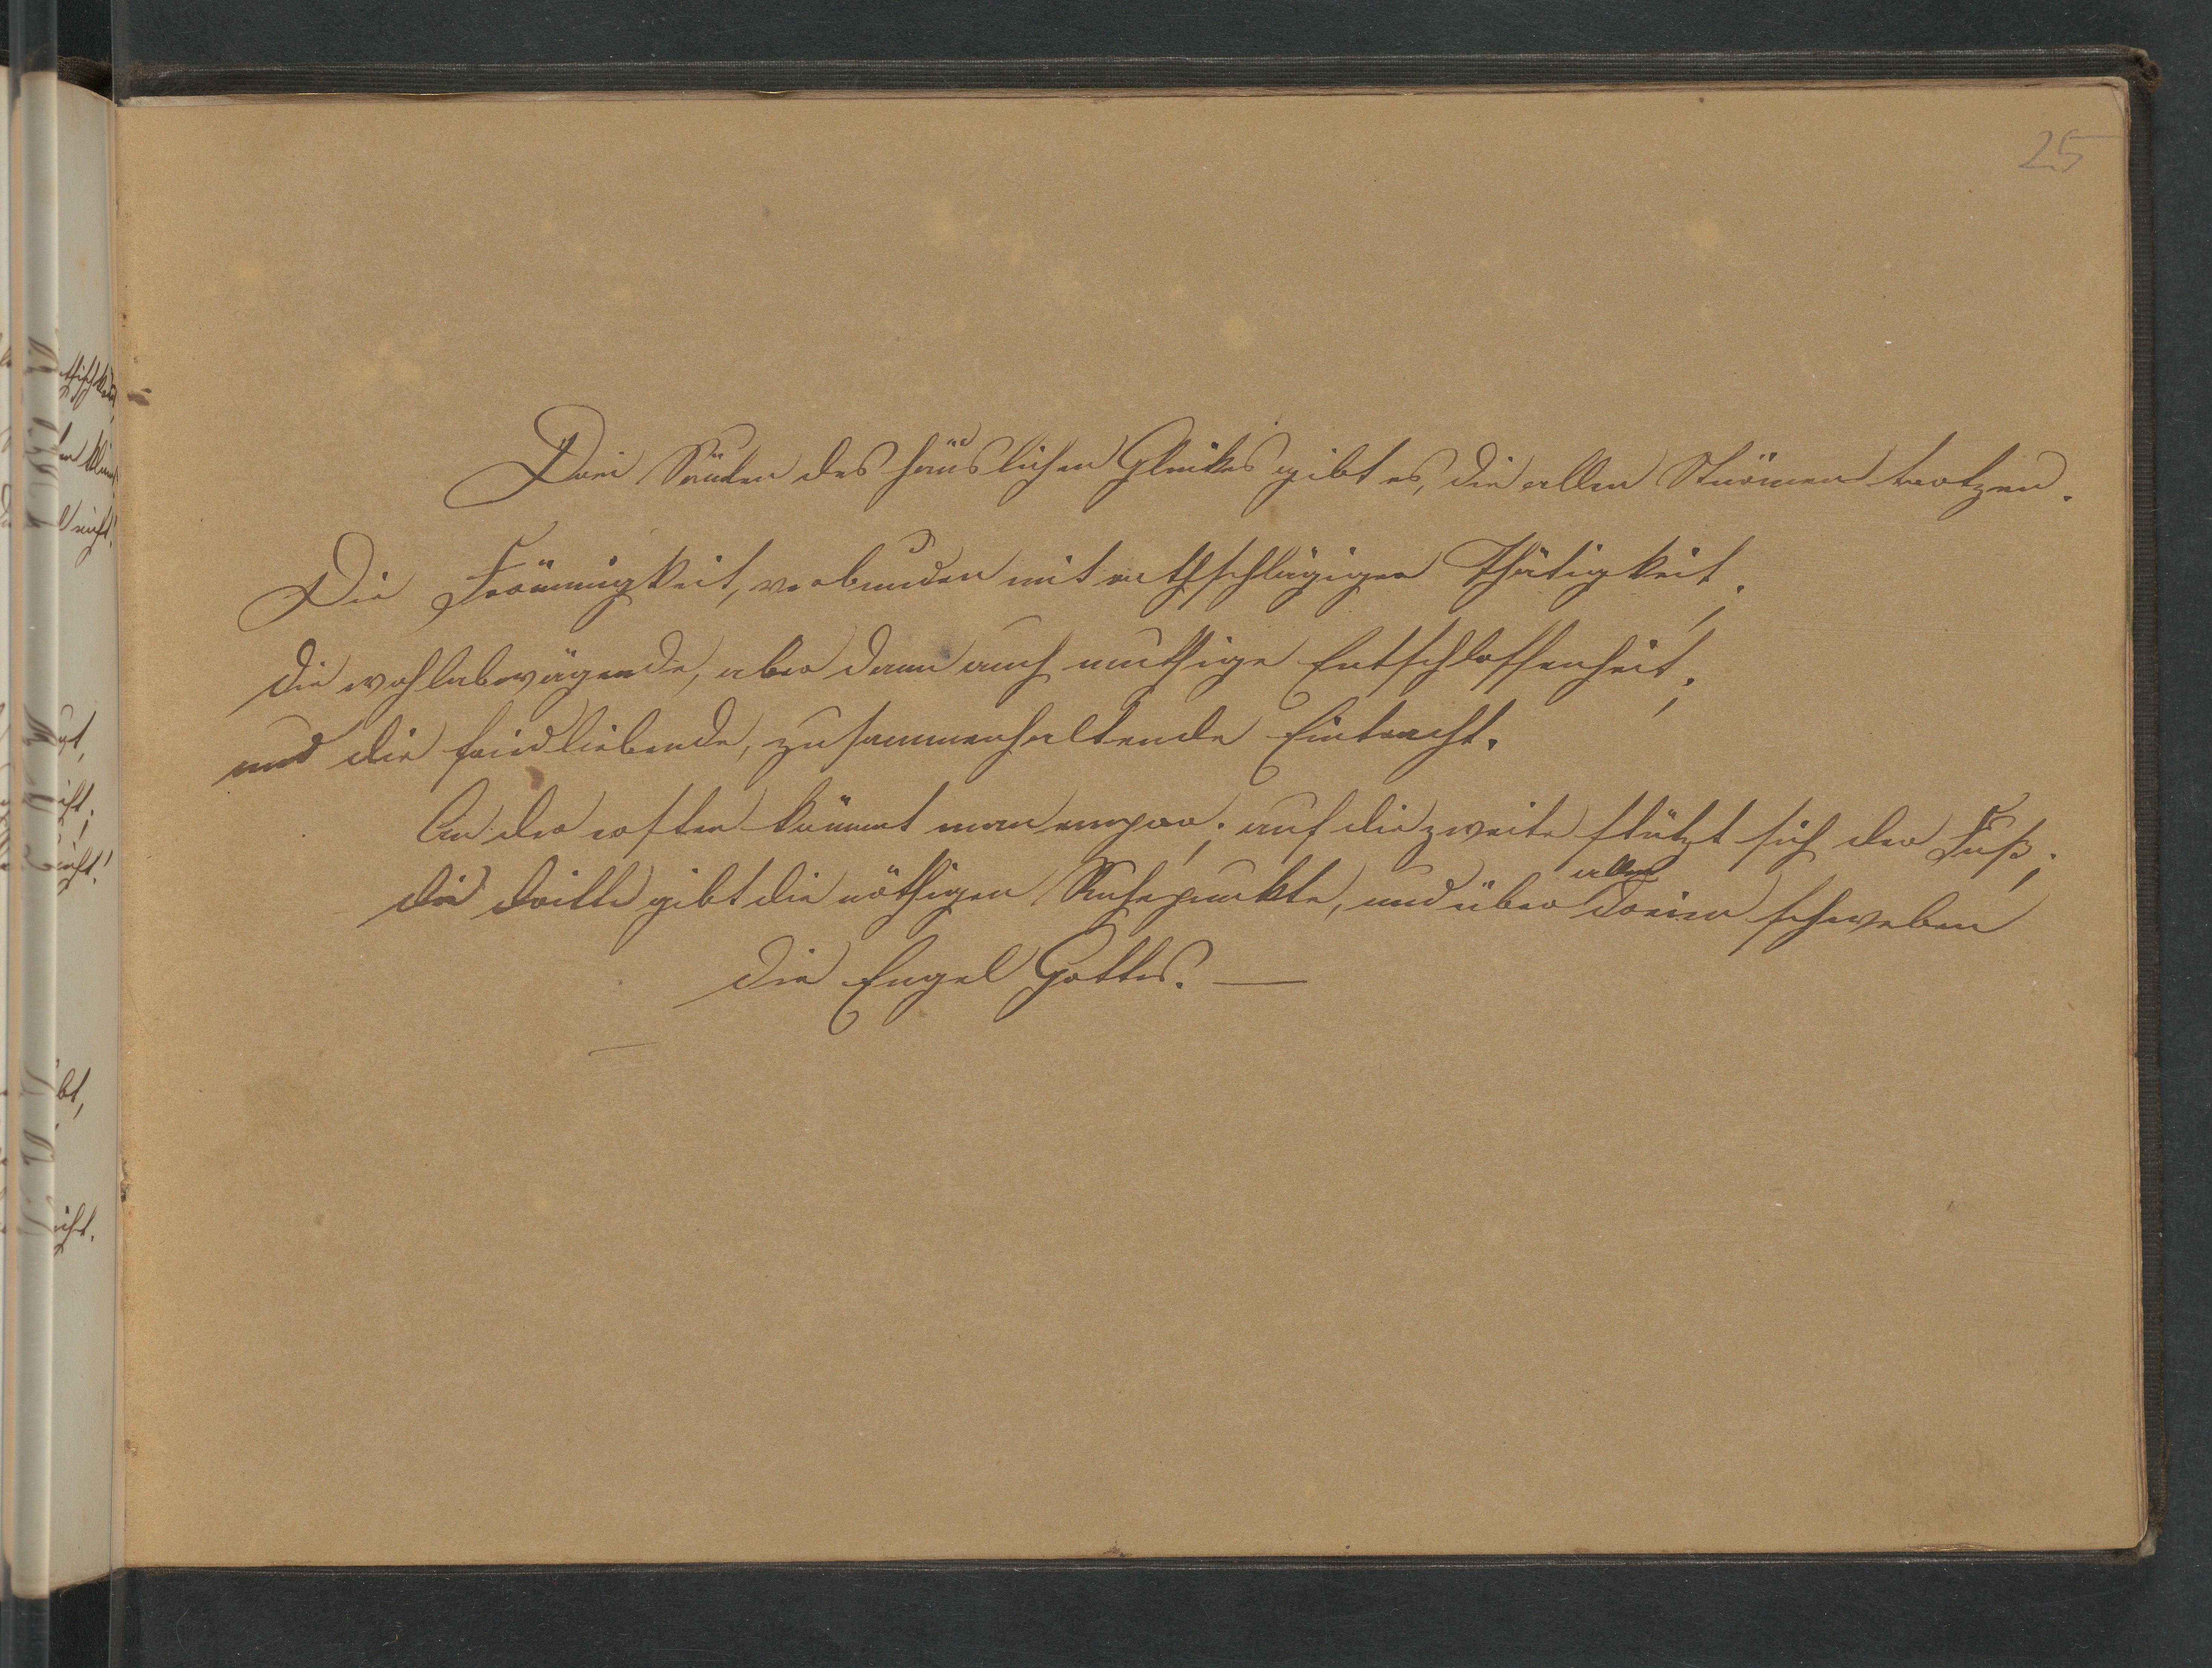 25
Drei Säulen des häuslichen Glückes gibt es, die allen Stürmen trotzen.
Die Frömmigkeit, verbunden mit rathschlägiger Thätigkeit;
die wohlabwägende, aber dann auch muthige Entschlossenheit;
und die friedliebende, zusammenhaltende Eintracht.
An der ersten kömmt man empor; auf die zweite stützt sich der Fuß;
allen
die dritte gibt die nöthigen Ruhepunkte, und über dreien schweben
die Engel Gottes. —